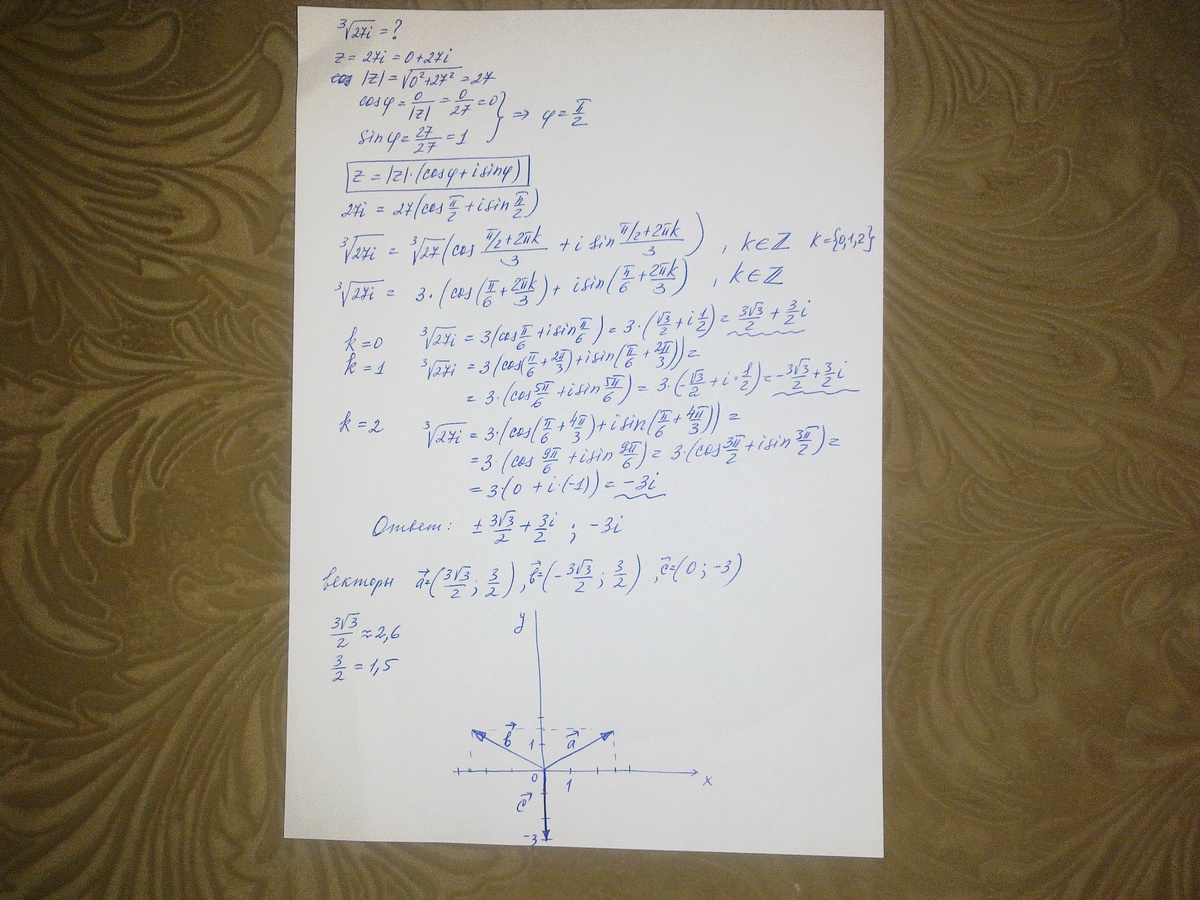 ∛27i = ?
z = 27i = 0+27i
|z| = √(0²+27²) = 27
cosφ = 0/|z| = 0/27 = 0
sinφ = 27/27 = 1 } ⇒ φ = π/2
z = |z|·(cosφ + i sinφ)
27i = 27(cos π/2 + i sin π/2)
∛27i = ∛27(cos (π/2+2πk)/3 + i sin (π/2+2πk)/3), k∈ℤ k={0,1,2}
∛27i = 3·(cos(π/6 + 2πk/3) + i sin(π/6 + 2πk/3), k∈ℤ
k=0 ∛27i = 3(cos π/6 + i sin π/6) = 3·(√3/2 + i 1/2) = 3√3/2 + 3/2 i
k=1 ∛27i = 3(cos(π/6 + 2π/3) + i sin(π/6 + 2π/3)) =
= 3·(cos 5π/6 + i sin 5π/6) = 3·(-√3/2 + i·1/2) = -3√3/2 + 3/2 i
k=2 ∛27i = 3·(cos(π/6 + 4π/3) + i sin(π/6 + 4π/3)) =
= 3·(cos 9π/6 + i sin 9π/6) = 3·(cos 3π/2 + i sin 3π/2) =
= 3·(0 + i·(-1)) = -3i
Ответ: ± 3√3/2 + 3i/2 ; -3i
векторы a⃗=(3√3/2 ; 3/2), в⃗=(-3√3/2 ; 3/2), c⃗=(0 ; -3)
3√3/2 ≈ 2,6
3/2 = 1,5
y
в⃗ 1 a⃗
0 1 x
c⃗
-3